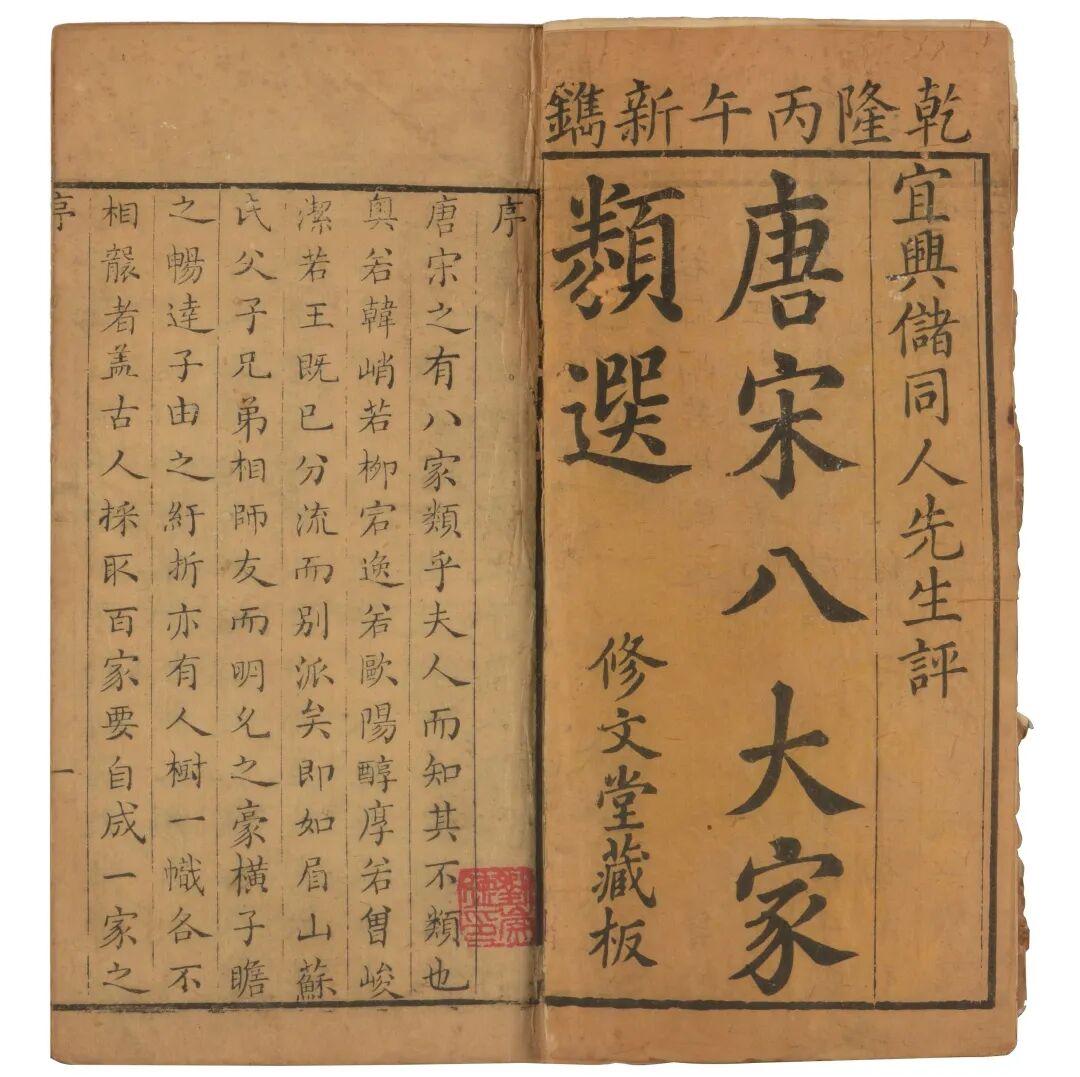 乾隆丙午新鐫
宜興儲同人先生評
唐宋八大家
類選
修文堂藏板
序
唐宋之有八家類乎夫人而知其不類也
奧若韓峭若柳宕逸若歐陽醇厚若曾峻
潔若王既已分流而別派矣即如眉山蘇
氏父子兄弟相師友而明允之豪橫子瞻
之暢達子由之紆折亦有人樹一幟各不
相襲者盖古人採取百家要自成一家之
序
一